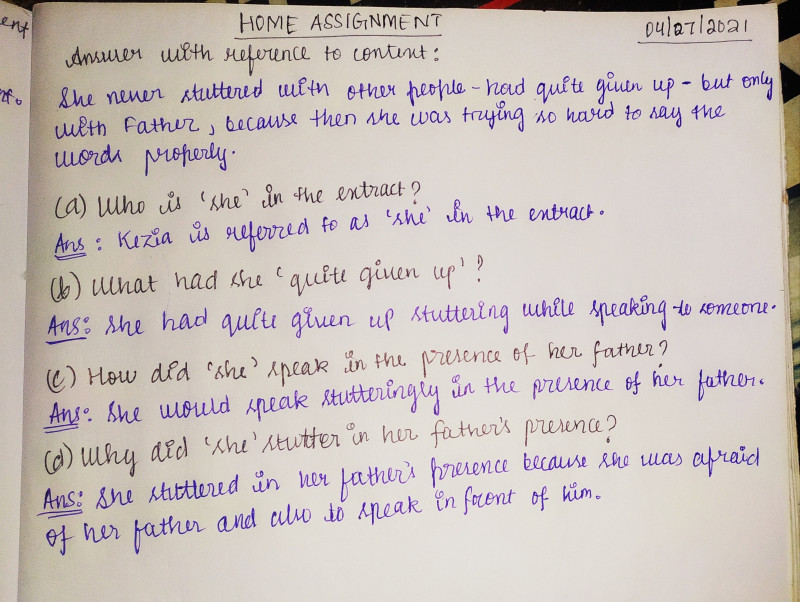 ent
nt.
HOME ASSIGNMENT
04/27/2021
Answer with reference to content:
She never stuttered with other people - had quite given up - but only
with Father, because then she was trying so hard to say the
words properly.
(a) Who is 'she' in the extract?
Ans: Kezia is referred to as 'she' in the extract.
(b) What had she 'quite given up'?
Ans: She had quite given up stuttering while speaking to someone.
(c) How did 'she' speak in the presence of her father?
Ans: She would speak stutteringly in the presence of her father.
(d) Why did 'she' stutter in her father's presence?
Ans: She stuttered in her father's presence because she was afraid
of her father and also to speak in front of him.